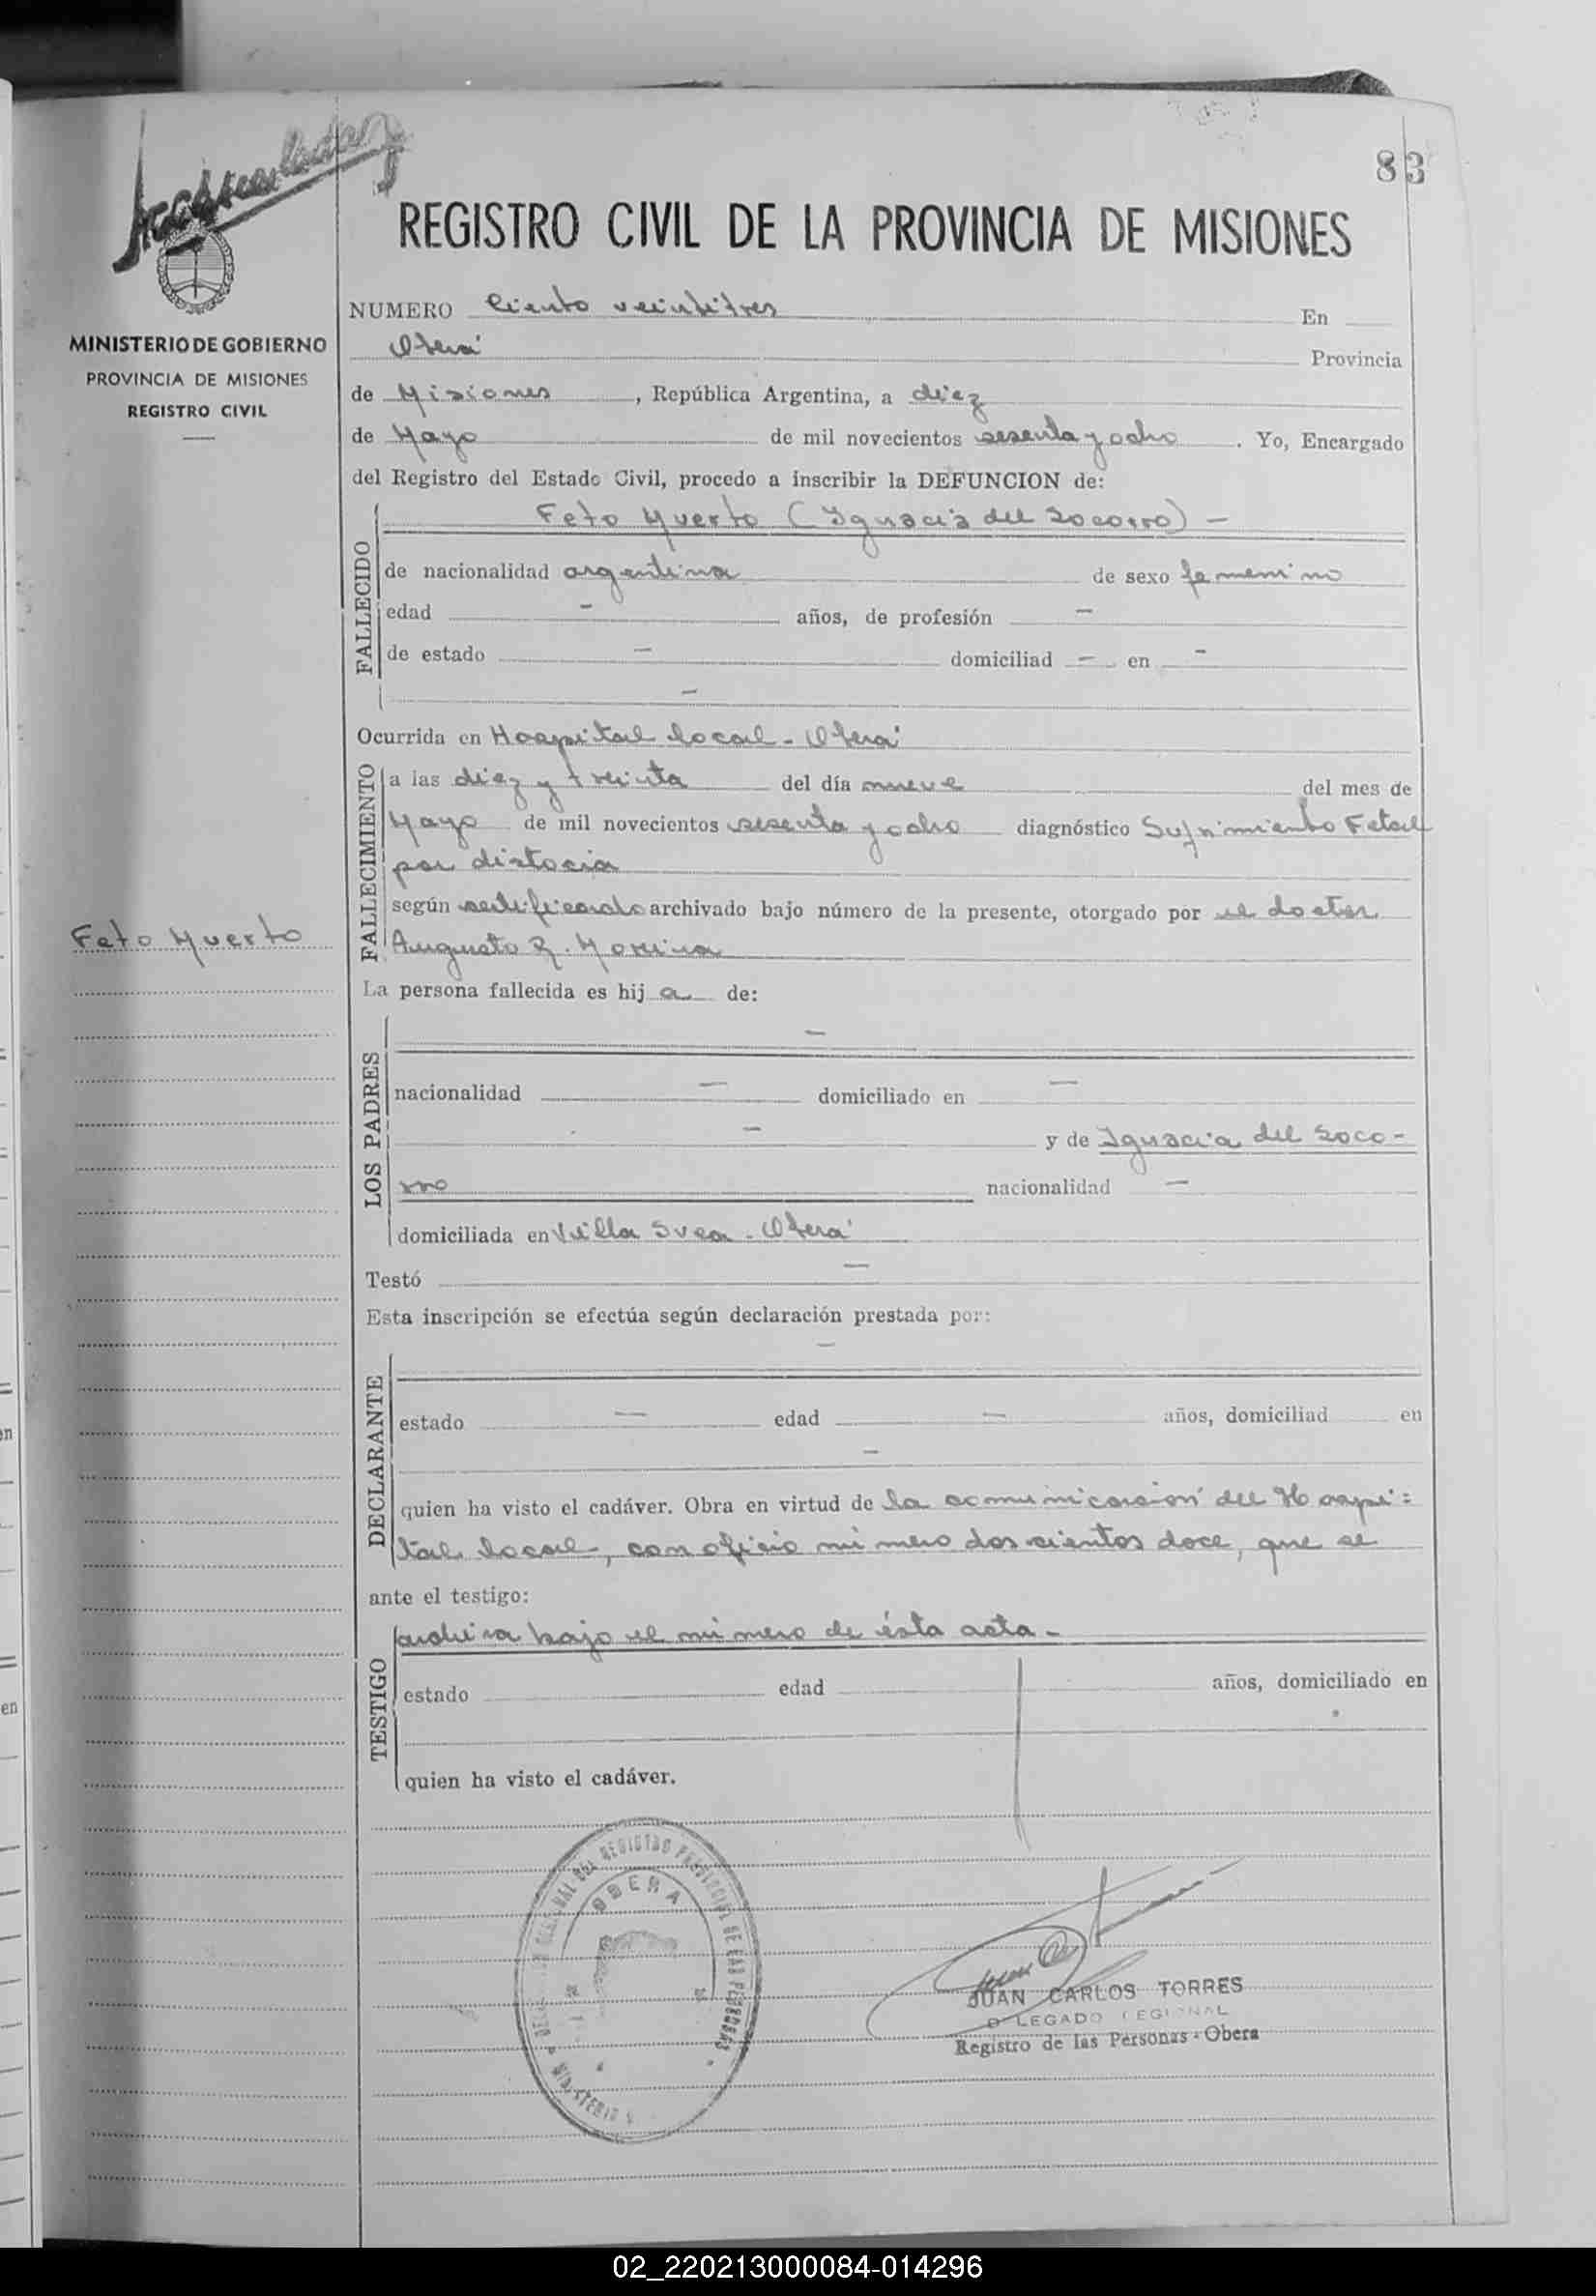 83
REGISTRO CIVIL DE LA PROVINCIA DE MISIONES
MINISTERIO DE GOBIERNO
PROVINCIA DE MISIONES
REGISTRO CIVIL
NUMERO Ciento veintitres En
Oberá Provincia
de Misiones, República Argentina, a diez
de Mayo de mil novecientos sesenta y ocho. Yo, Encargado
del Registro del Estado Civil, procedo a inscribir la DEFUNCION de:
FALLECIDO
Feto Muerto (Ignacia del Socorro) -
de nacionalidad argentina de sexo femenino
edad - años, de profesión -
de estado - domiciliad - en -
-
Ocurrida en Hospital local - Oberá
FALLECIMIENTO
a las diez y treinta del día nueve del mes de
Mayo de mil novecientos sesenta y ocho diagnóstico Sufrimiento Fetal
por distocia
según certificado archivado bajo número de la presente, otorgado por el doctor
Augusto R. Moreira
Feto Muerto
La persona fallecida es hij a de:
LOS PADRES
-
nacionalidad - domiciliado en -
- y de Ignacia del Soco-
rro nacionalidad -
domiciliada en Villa Svea - Oberá
Testó -
Esta inscripción se efectúa según declaración prestada por:
DECLARANTE
-
estado - edad - años, domiciliad en
-
quien ha visto el cadáver. Obra en virtud de la comunicación del Hospi=
tal local, con oficio número doscientos doce, que se
ante el testigo:
archiva bajo el número de ésta acta -
TESTIGO
estado edad años, domiciliado en
quien ha visto el cadáver.
OBERA
JUAN CARLOS TORRES
DELEGADO REGIONAL
Registro de las Personas - Obera
02_220213000084-014296